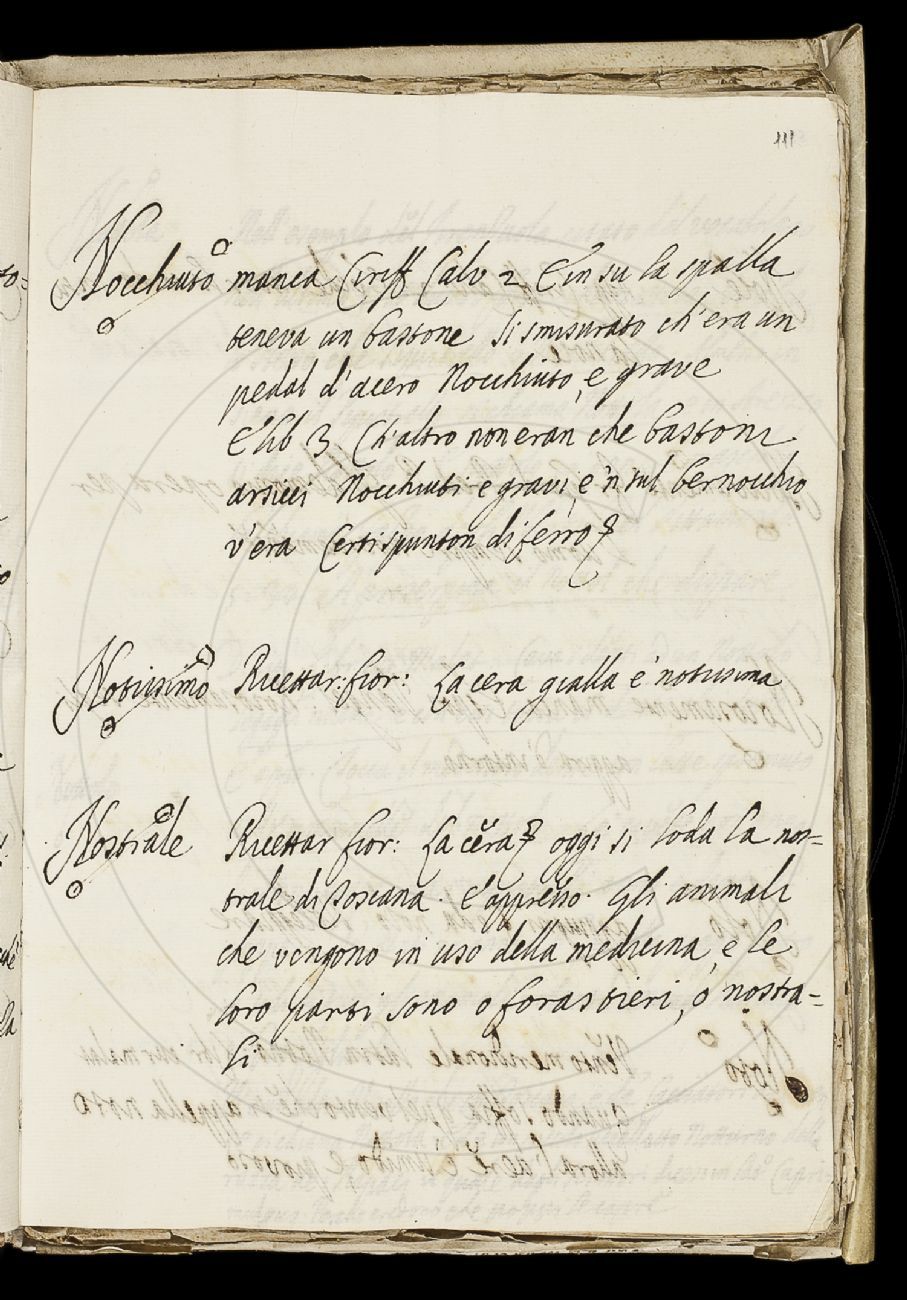 111
Nocchiuto manca Ciriff Calv 2 E 'in su la spalla
teneva un bastone si smisurato ch'era un
pedal d'acero Nocchiuto, e grave
E lib 3 Ch'altro non eran che bastoni
arsicci Nocchiuti e gravi, e 'n sul bernocchio
v'era Certi spunton di ferro
Notissimo Ricettar: fior: La cera gialla è notissima
Nostrale Ricettar fior: La cera oggi si loda la nos=
trale di Toscana. E appresso. Gli animali
che vengono in uso della medicina, e le
loro parti sono o forastieri, o nostra=
li